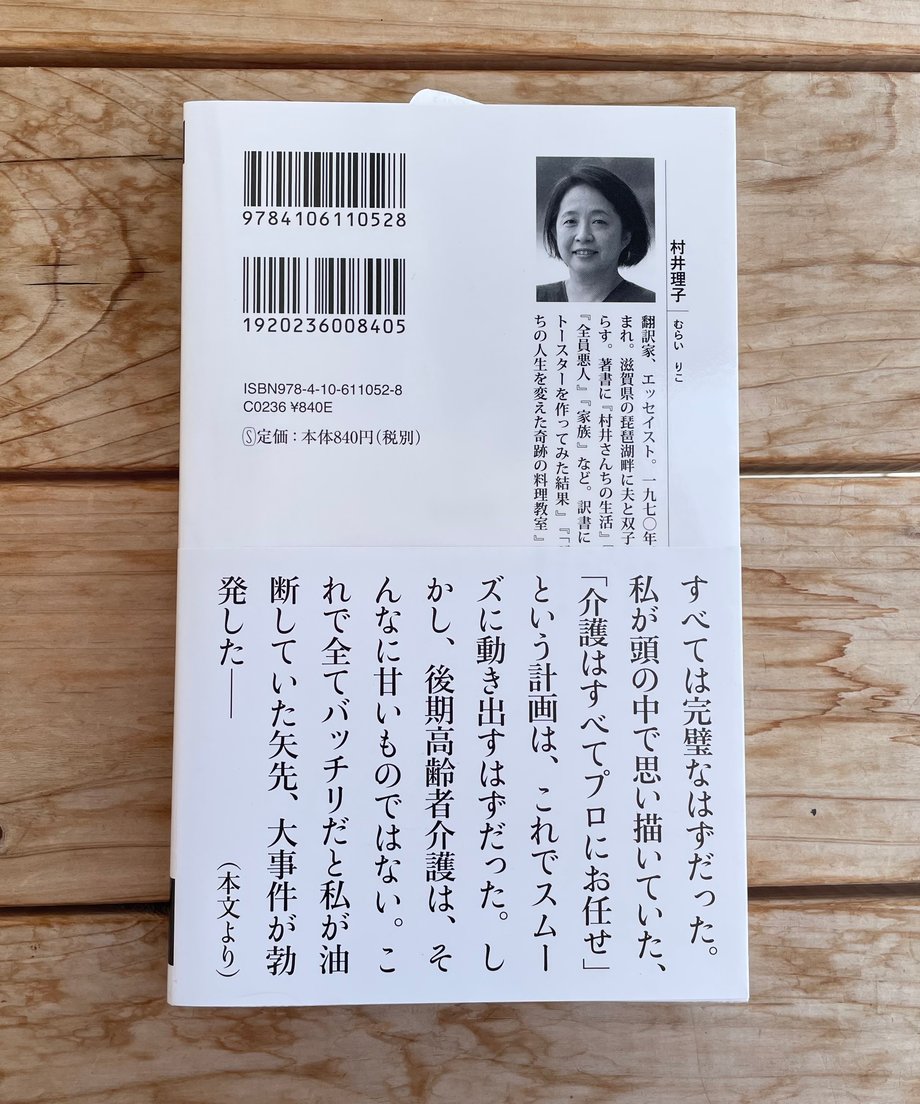 9784106110528
1920236008405
ISBN978-4-10-611052-8
C0236 ¥840E
Ⓢ定価：本体840円（税別）
村井理子
むらい りこ
翻訳家、エッセイスト。一九七〇年
まれ。滋賀県の琵琶湖畔に夫と双子
らす。著書に『村井さんちの生活』
『全員悪人』『家族』など。訳書に
トースターを作ってみた結果』『
ちの人生を変えた奇跡の料理教室』
すべては完璧なはずだった。
私が頭の中で思い描いていた、
「介護はすべてプロにお任せ」
という計画は、これでスムー
ズに動き出すはずだった。し
かし、後期高齢者介護は、そ
んなに甘いものではない。こ
れで全てバッチリだと私が油
断していた矢先、大事件が勃
発した――
（本文より）